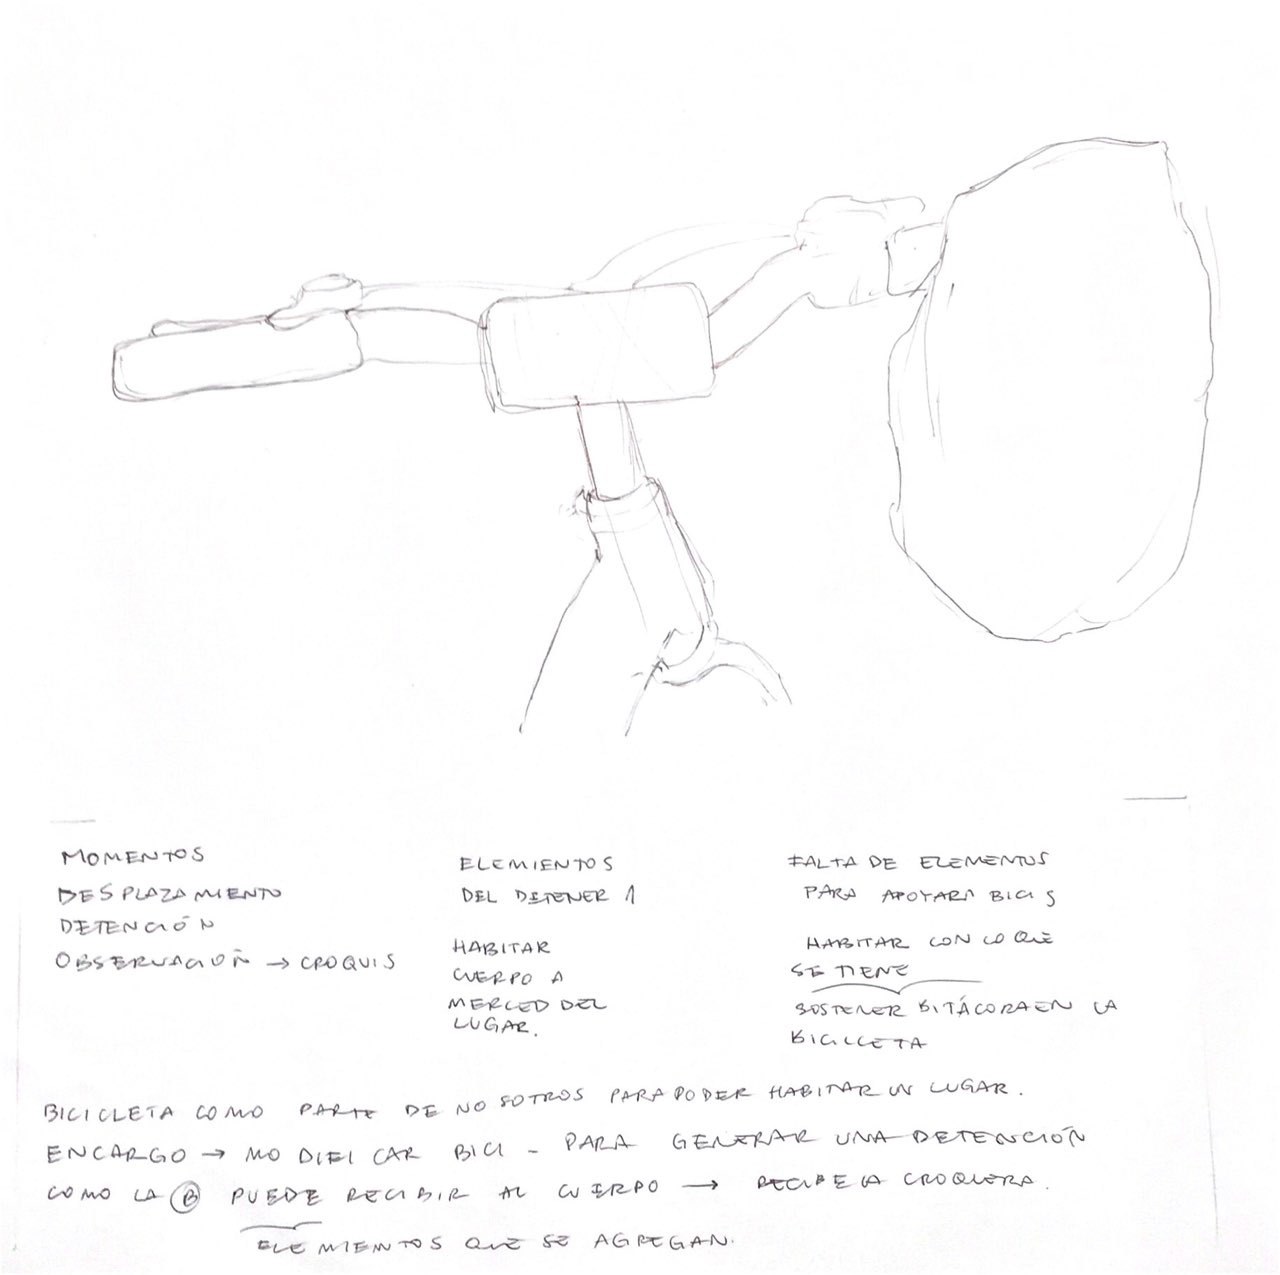 MOMENTOS
DESPLAZAMIENTO
DETENCIÓN
OBSERVACIOÑ → CROQUIS
ELEMIENTOS
DEL DETENER
HABITAR
CUERPO A
MERCED DEL
LUGAR.
FALTA DE ELEMENTOS
PARA APOYARA BICIS
HABITAR CON LO QUE
SE TIENE
SOSTENER BITÁCORA EN LA
BICICLETA
BICICLETA COMO PARTE DE NOSOTROS PARA PODER HABITAR UN LUGAR.
ENCARGO → MODIFICAR BICI - PARA GENERAR UNA DETENCIÓN
COMO LA B PUEDE RECIBIR AL CUERPO → RECIBE LA CROQUERA.
ELEMIENTOS QUE SE AGREGAN.